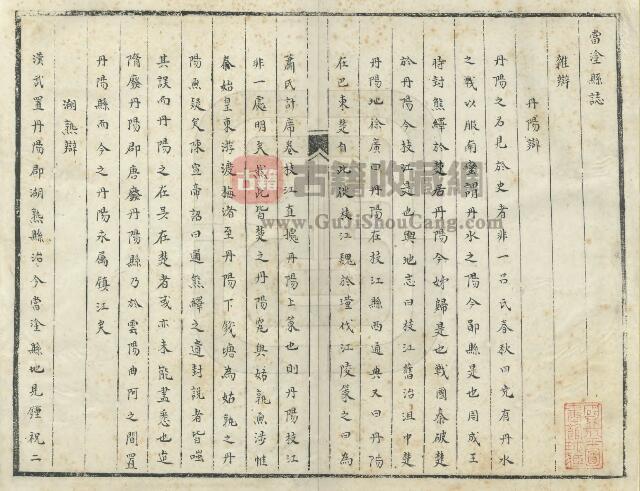 當塗縣誌
雜辯
丹陽辯
丹陽之名見於史者非一呂氏春秋曰堯有丹水
之戰以服南蠻謂丹水之陽今鄖縣是也周成王
時封熊繹於楚居丹陽今姊歸是也戰國秦破楚
於丹陽今枝江是也輿地志曰枝江舊治沮中楚
丹陽地徐廣曰丹陽在枝江縣西通典又曰丹陽
在巴東楚自此徙枝江魏於瑾伐江陵策之曰為
蕭氏計席卷枝江直據丹陽上策也則丹陽枝江
非一處明矣然此皆楚之丹陽究與姑孰無涉惟
秦始皇東游渡梅渚至丹陽下錢塘為姑孰之丹
陽無疑矣陳宣帝詔曰通熊繹之遺封說者皆嗤
其誤而丹陽之在吳在楚者或亦未能盡悉也迨
隋廢丹陽郡唐廢丹陽縣乃於雲陽曲阿之間置
丹陽縣而今之丹陽永屬鎮江矣
湖熟辯
漢武置丹陽郡湖熟縣治今當塗縣地見鍾祝二
古籍收藏網
www.GuJiShouCang.com